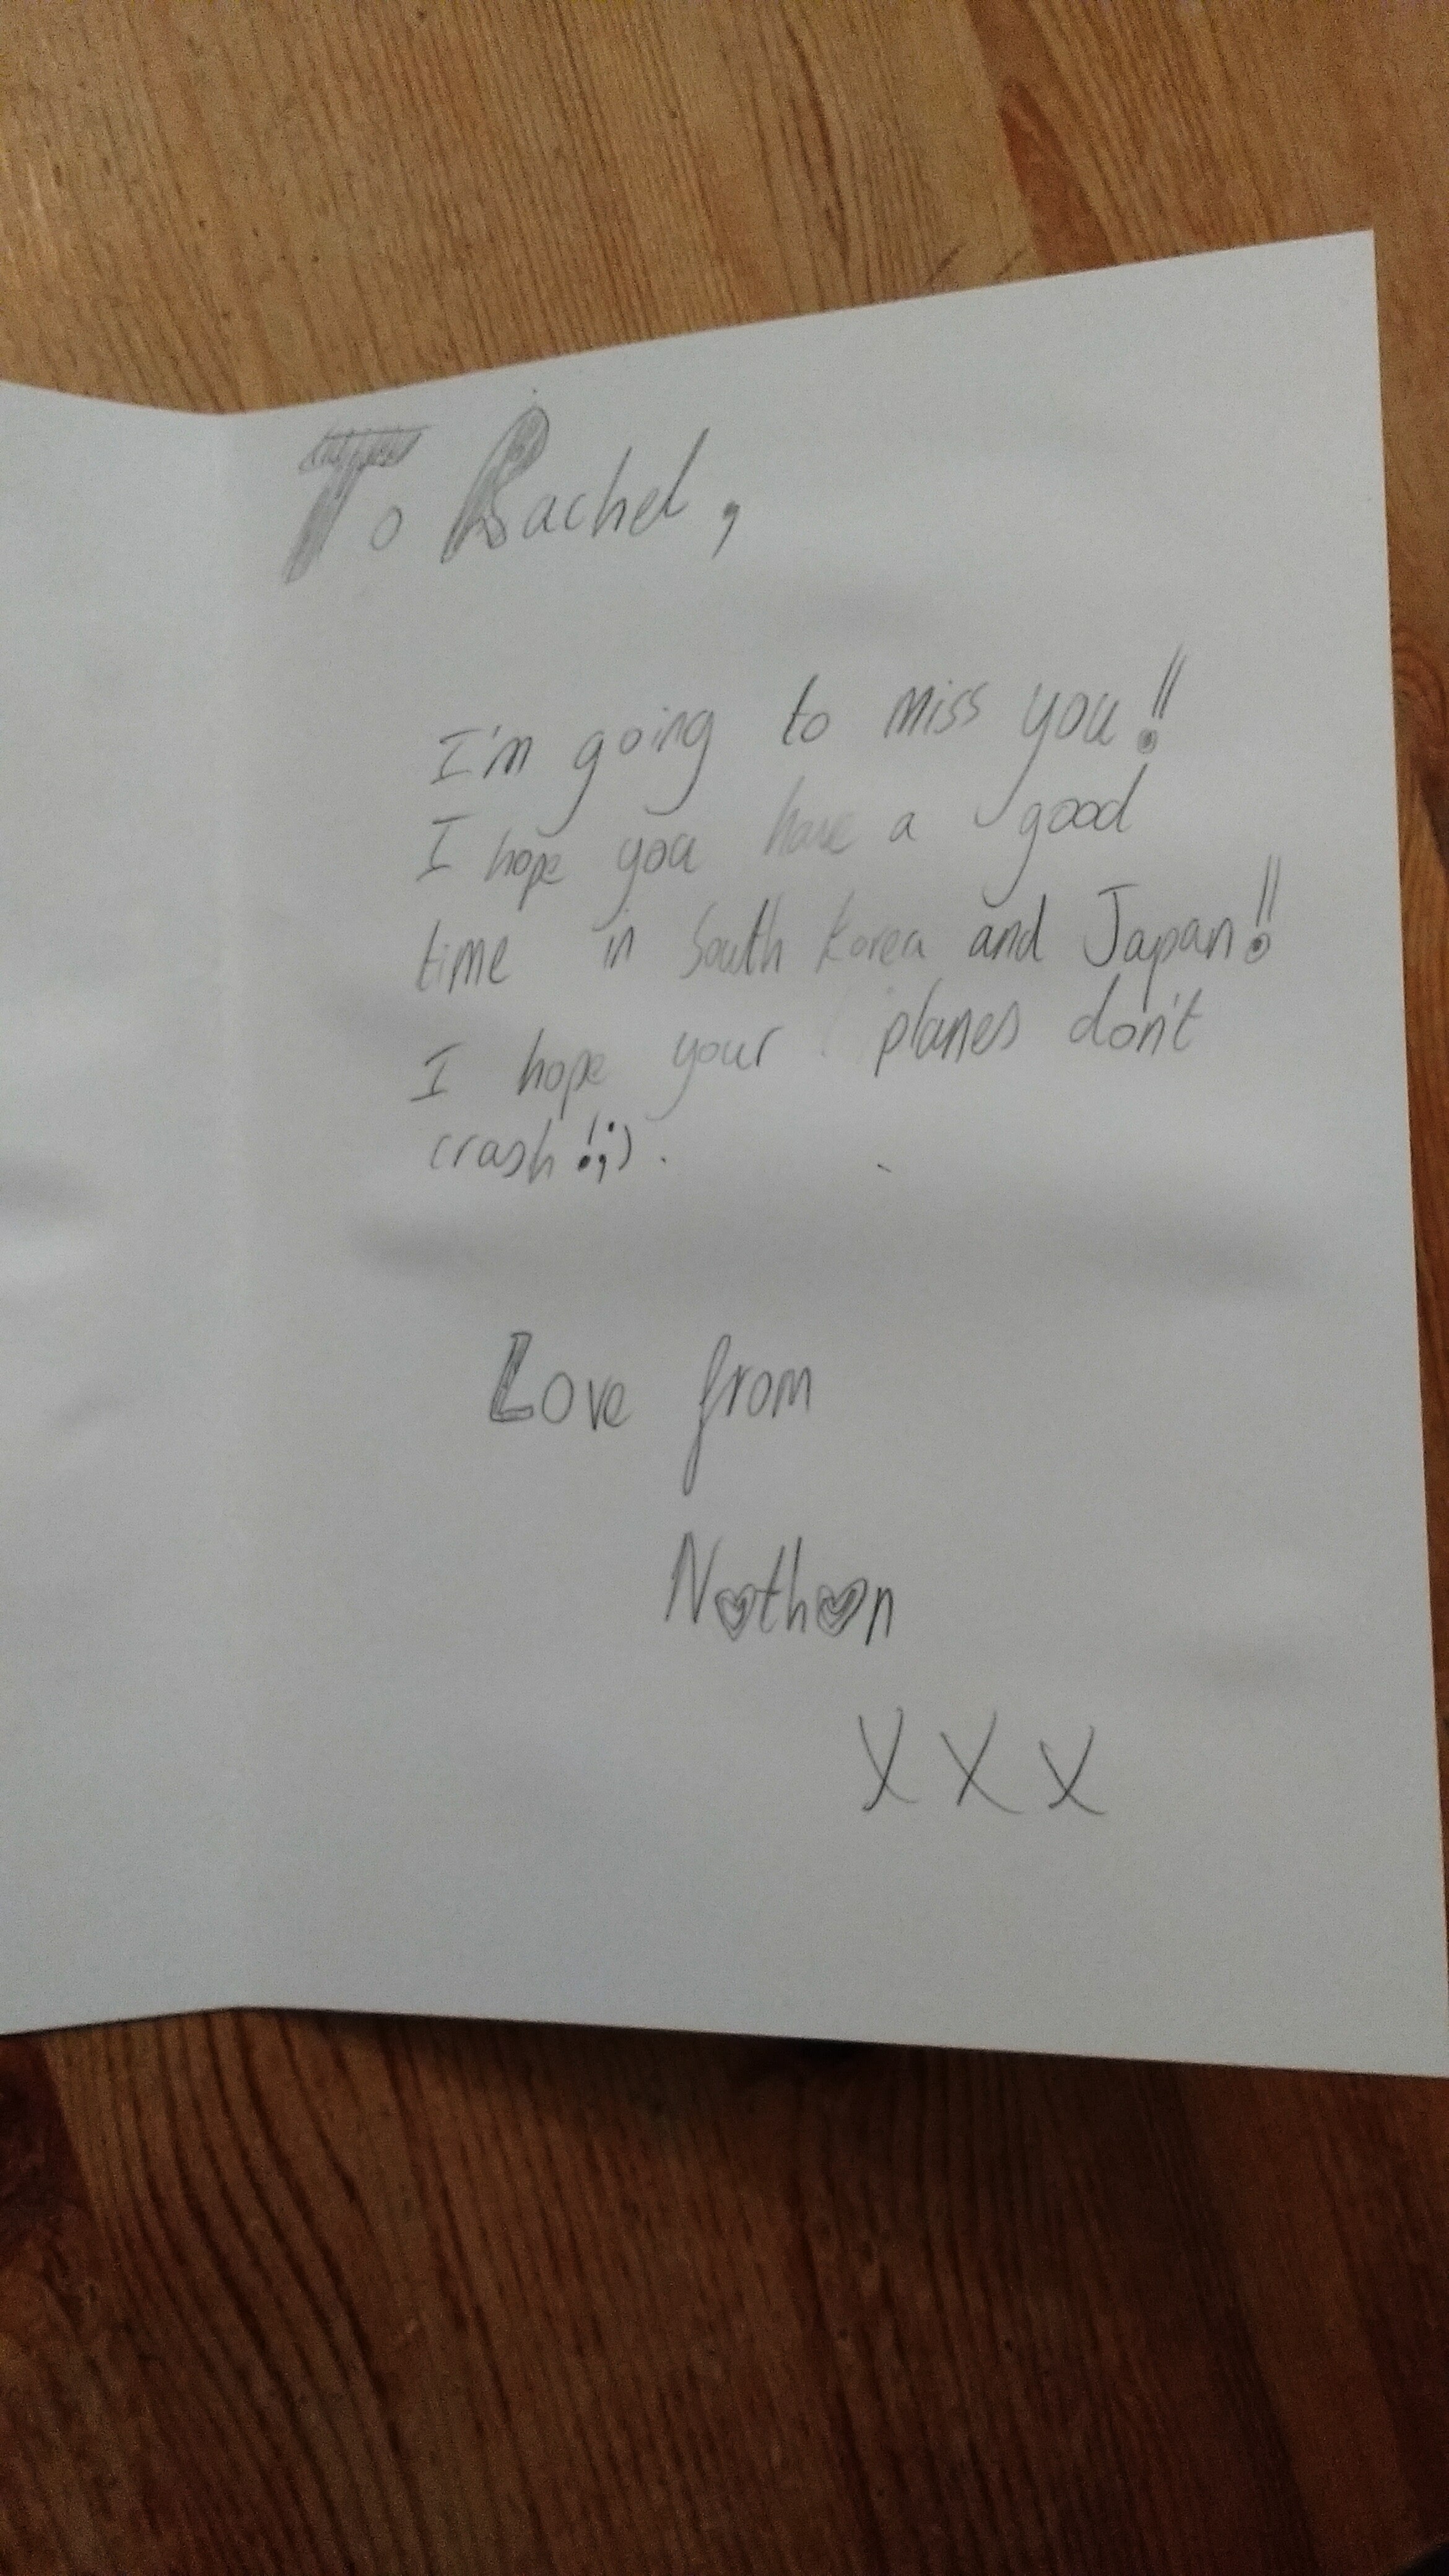 To Rachel,
I'm going to miss you!!
I hope you have a good
time in South Korea and Japan!!
I hope your planes don't
crash!;).
Love from
Nathan
xxx